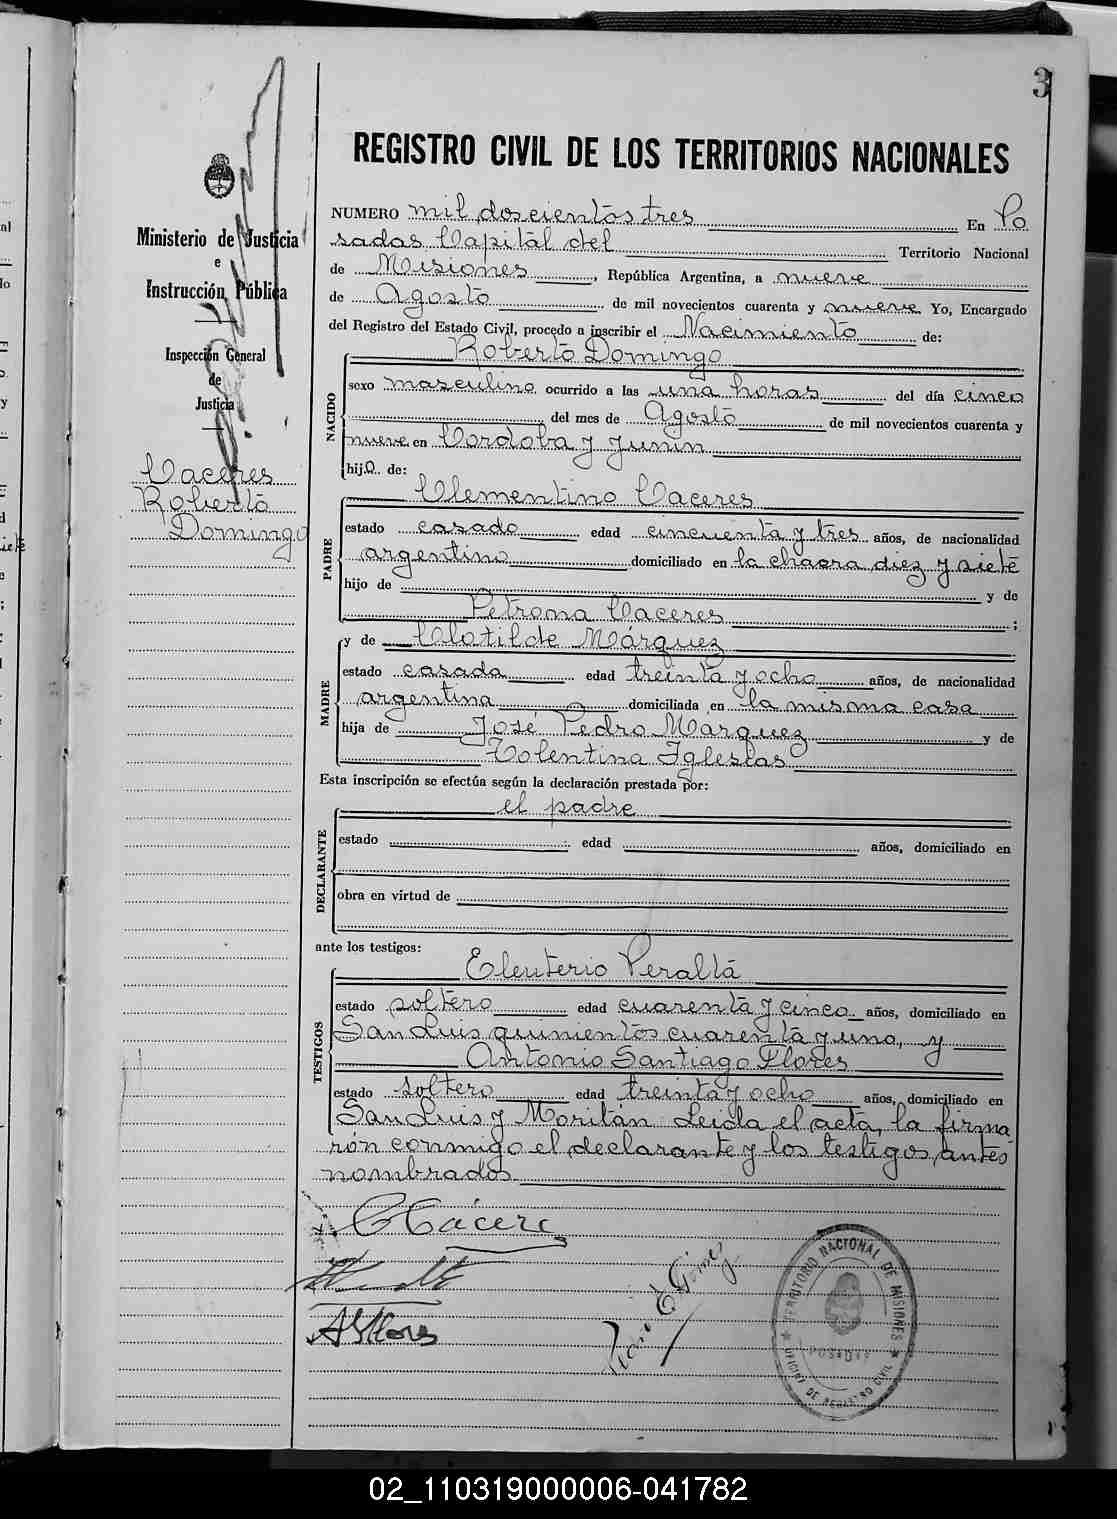 3
REGISTRO CIVIL DE LOS TERRITORIOS NACIONALES
Ministerio de Justicia
e
Instrucción Pública
Inspección General
de
Justicia
Caceres
Roberto
Domingo
NUMERO mil doscientos tres En Po
sadas Capital del Territorio Nacional
de Misiones, República Argentina, a nueve
de Agosto de mil novecientos cuarenta y nueve Yo, Encargado
del Registro del Estado Civil, procedo a inscribir el Nacimiento de:
Roberto Domingo
NACIDO
sexo masculino ocurrido a las una horas del día cinco
del mes de Agosto de mil novecientos cuarenta y
nueve en Cordoba y Junin
hijo de:
Clementino Caceres
PADRE
estado casado edad cincuenta y tres años, de nacionalidad
argentino domiciliado en la chacra diez y siete
hijo de y de
Petrona Caceres;
y de Clotilde Márquez
MADRE
estado casada edad treinta y ocho años, de nacionalidad
argentina domiciliada en la misma casa
hija de José Pedro Marquez y de
Tolentina Iglesias
Esta inscripción se efectúa según la declaración prestada por:
el padre
DECLARANTE
estado edad años, domiciliado en
obra en virtud de
ante los testigos:
Eleuterio Peralta
TESTIGOS
estado soltero edad cuarenta y cinco años, domiciliado en
San Luis quinientos cuarenta y uno, y
Antonio Santiago Flores
estado soltero edad treinta y ocho años, domiciliado en
San Luis y Moritán Leida el acta, la firma
ron conmigo el declarante y los testigos antes
nombrados
CCácere
ASFlores
E Gómez
TERRITORIO NACIONAL DE MISIONES
POSADAS
OFICINA DE REGISTRO CIVIL
02_110319000006-041782